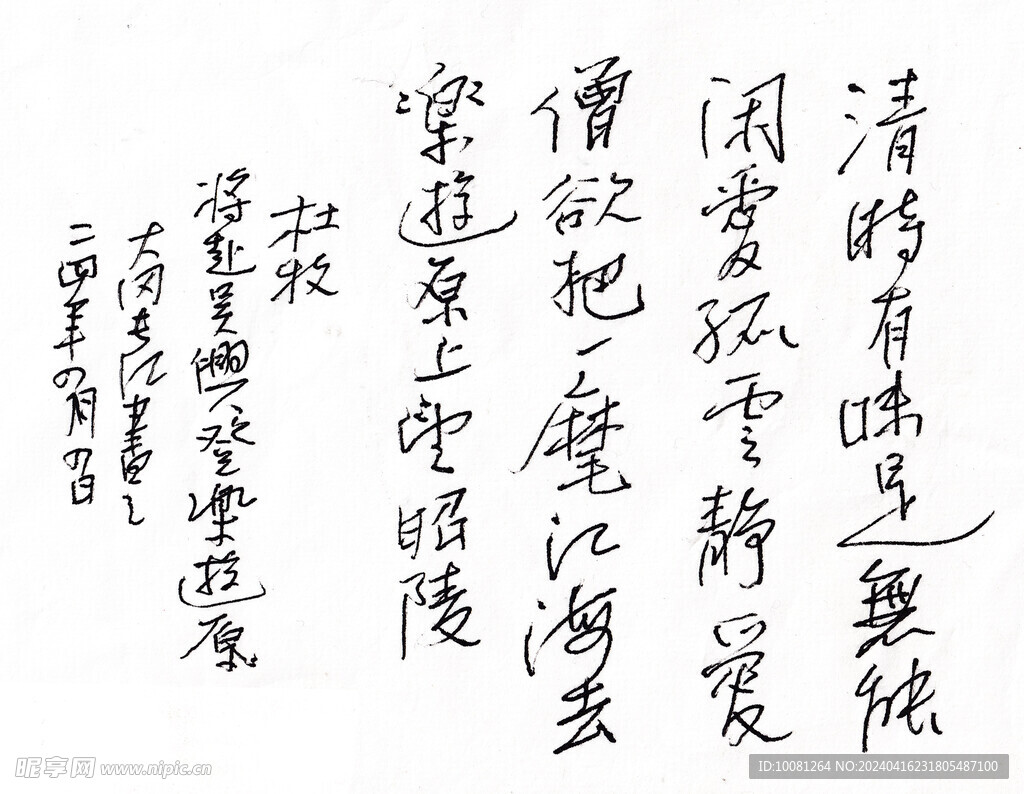 清時有味是無能
闲愛孤雲靜愛
僧欲把一麾江海去
樂遊原上望昭陵
杜牧
将赴吴興登樂遊原
大江書之
二四年四月四日
昵享网 www.nipic.cn
ID:10081264 NO:20240416231805487100